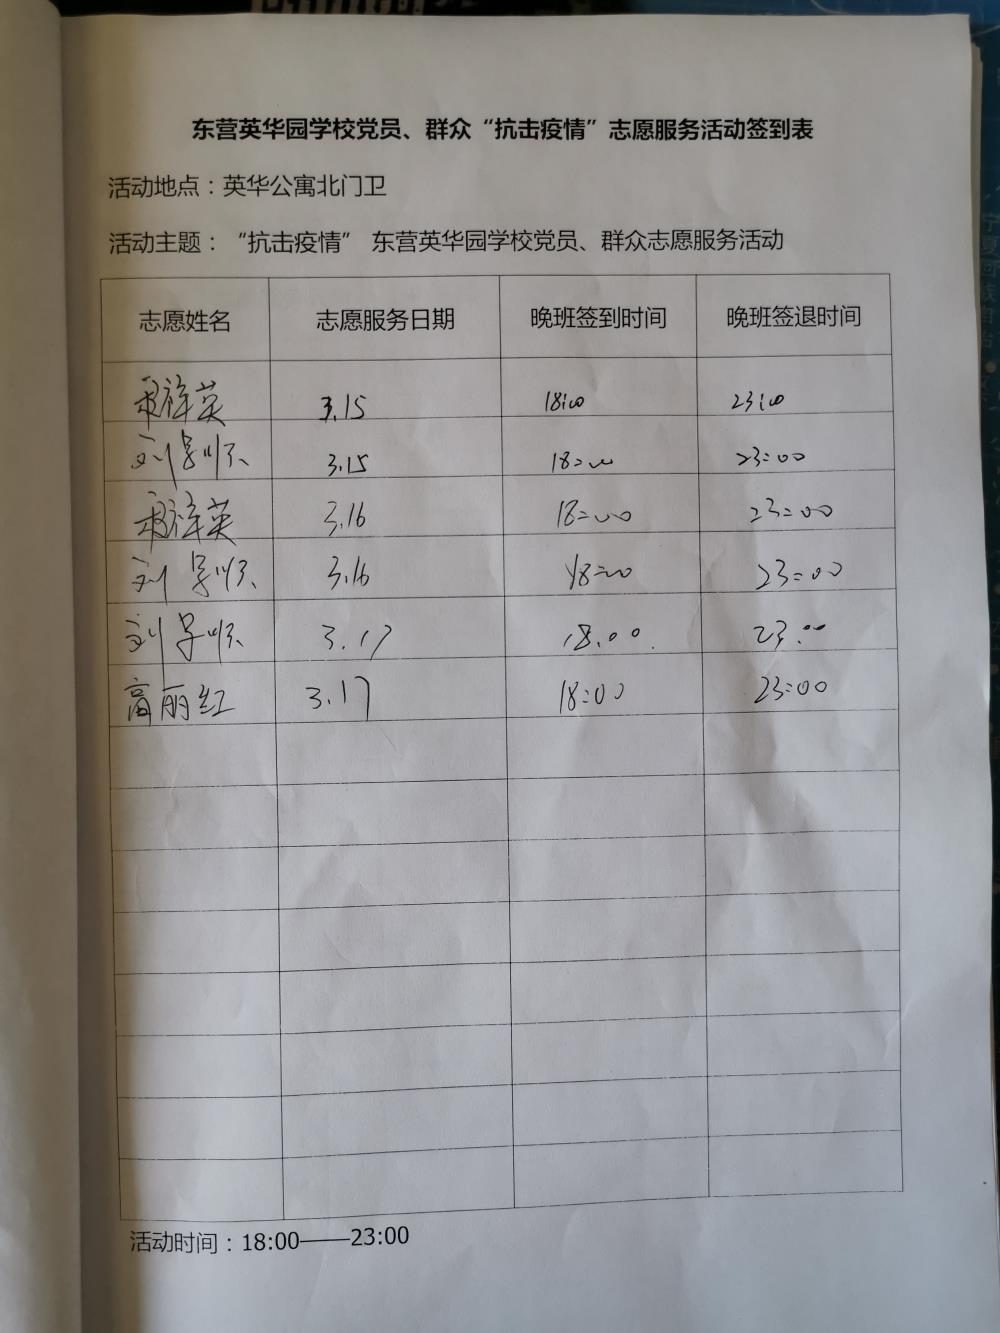 东营英华园学校党员、群众“抗击疫情”志愿服务活动签到表
活动地点：英华公寓北门卫
活动主题：“抗击疫情” 东营英华园学校党员、群众志愿服务活动
志愿姓名 志愿服务日期 晚班签到时间 晚班签退时间
祥英 3.15 18:00 23:00
刘学顺 3.15 18:00 23:00
祥英 3.16 18:00 23:00
刘学顺 3.16 18:00 23:00
刘学顺 3.17 18.00 23:00
高丽红 3.17 18:00 23:00
活动时间：18:00——23:00